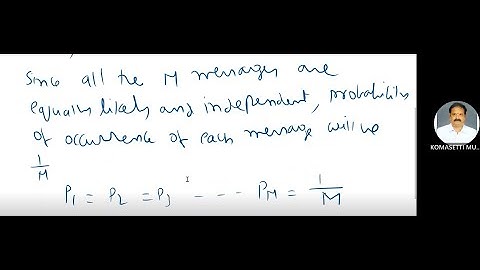 Since all the M messages are
equally likely and independent, probability
of occurrence of each message will be
1/M
P₁ = P₂ = P₃ - - - P_M = 1/M
KOMASETTI MU..